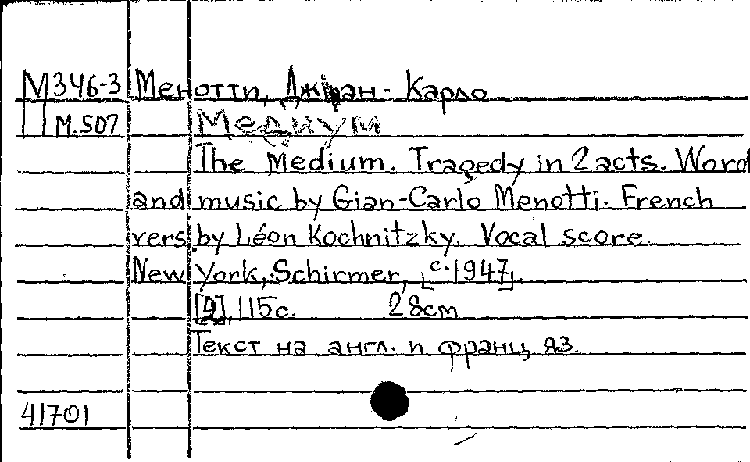 М346-3 Менотти, Джан-Карло
М.507 Медиум
The Medium. Tragedy in 2 acts. Word
and music by Gian-Carlo Menotti. French
vers by Léon Kochnitzky. Vocal score.
New York, Schirmer, [c.1947].
[9], 115с. 28см
Текст на англ. и франц. яз.
41701